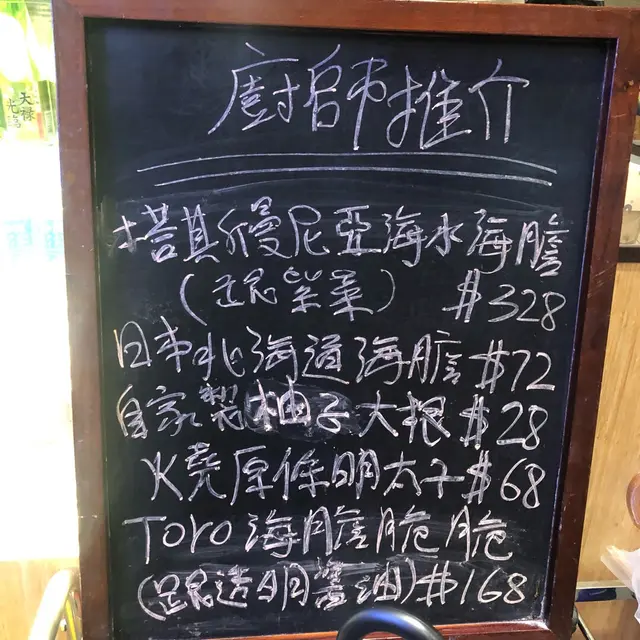 大祿
光福
廚師推介
塔其縵尼亞海水海膽
(跟紫菜) $328
日本北海道海膽 $72
自家製柚子大根 $28
火燒原條明太子 $68
Toro 海膽脆脆
(跟透明醬油) $168